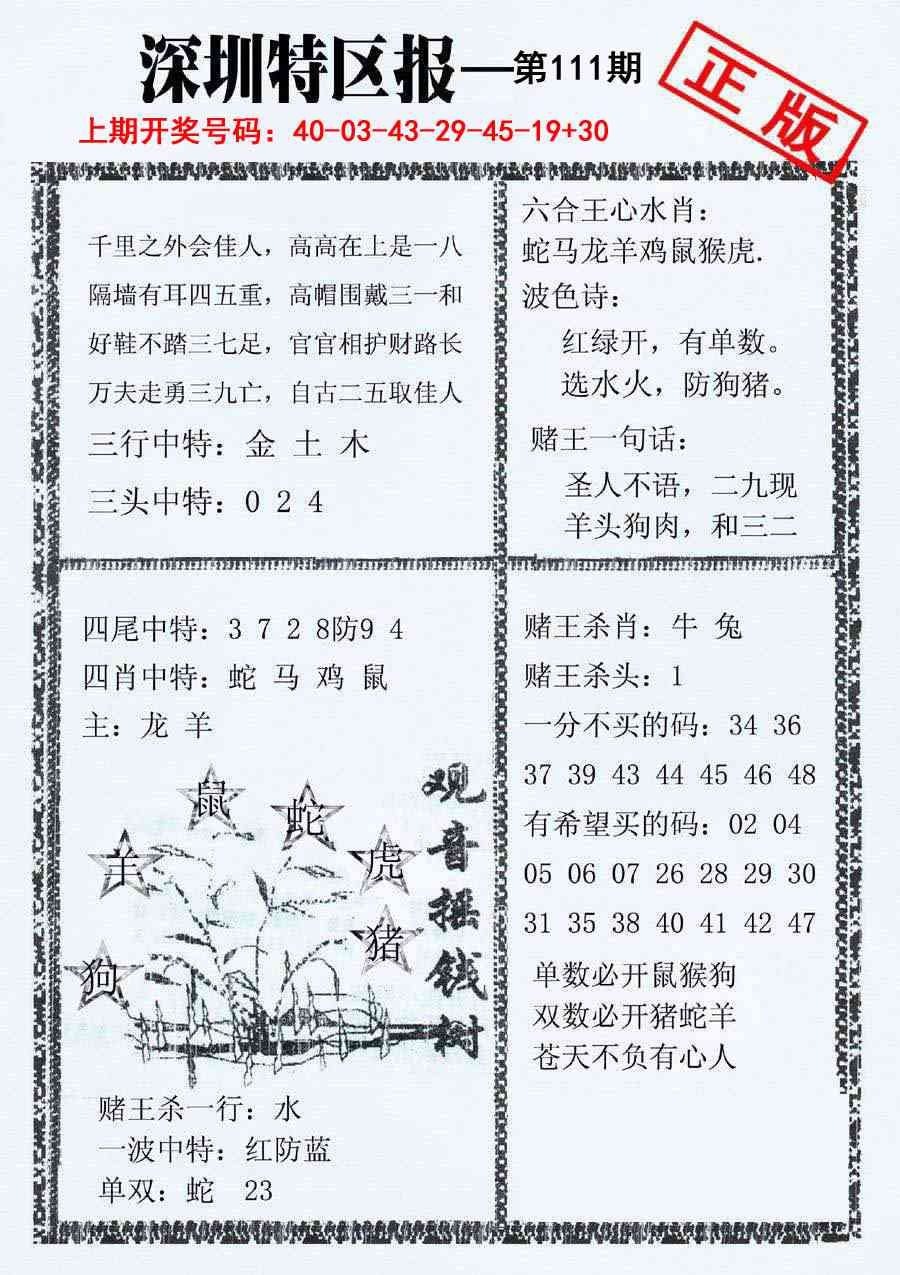 深圳特区报—第111期
正版
上期开奖号码：40-03-43-29-45-19+30
千里之外会佳人，高高在上是一八
隔墙有耳四五重，高帽围戴三一和
好鞋不踏三七足，官官相护财路长
万夫走勇三九亡，自古二五取佳人
三行中特：金 土 木
三头中特：0 2 4
六合王心水肖：
蛇马龙羊鸡鼠猴虎.
波色诗：
红绿开，有单数。
选水火，防狗猪。
赌王一句话：
圣人不语，二九现
羊头狗肉，和三二
四尾中特：3 7 2 8防9 4
四肖中特：蛇 马 鸡 鼠
主：龙 羊
鼠
蛇
羊
虎
猪
狗
观音摇钱树
赌王杀一行：水
一波中特：红防蓝
单双：蛇 23
赌王杀肖：牛 兔
赌王杀头：1
一分不买的码：34 36
37 39 43 44 45 46 48
有希望买的码：02 04
05 06 07 26 28 29 30
31 35 38 40 41 42 47
单数必开鼠猴狗
双数必开猪蛇羊
苍天不负有心人